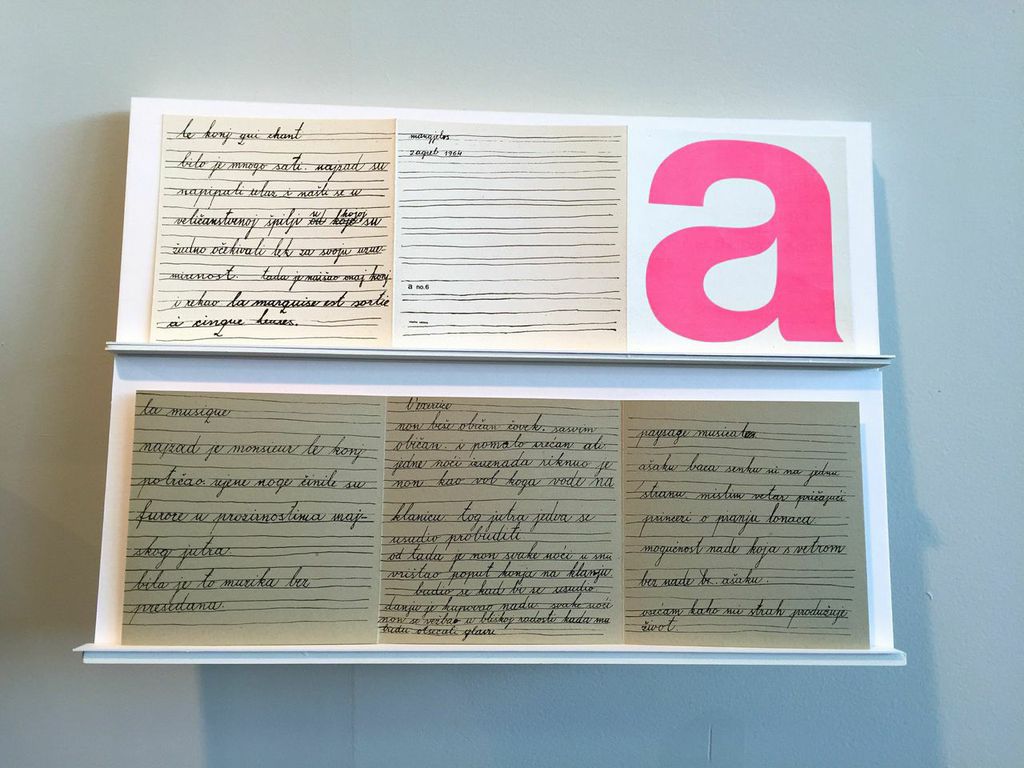 le konj qui chant
bilo je mnogo sati. najzad su
napipali utar i našli se u
veličanstvenoj špilji u kojoj su
žudno očekivali lek za svoju uzne-
mirenost. tada je naišao onaj konj
i rekao la marquise est sortie
à cinque heures.
mangelos
zagreb 1964
a no. 6
a
la musique
najzad je monsieur le konj
potrčao. njene noge činile su
furore u prozirnostima maj-
skog jutra.
bila je to muzika bez
presedana.
l'exercice
non beše običan čovek. sasvim
običan. i pomalo srećan ali
jedne noći iznenada riknuo je
non kao vol koga vode na
klanicu. tog jutra jedva se
usudio probuditi
od tada je non svake noći u snu
vrištao poput konja na klanju.
budio se kad bi se usudio
danju je kupovao nadu. svake noći
non se vežbao u bliskoj radosti kada mu
budu otsecali glavu
paysage musical
ašaku baca senku ni na jednu
stranu mislim vetar pričajući
princezi o pranju lonaca
mogućnost nade koja s vetrom
bez nade bez ašaku.
osećam kako mi strah produžuje
život.